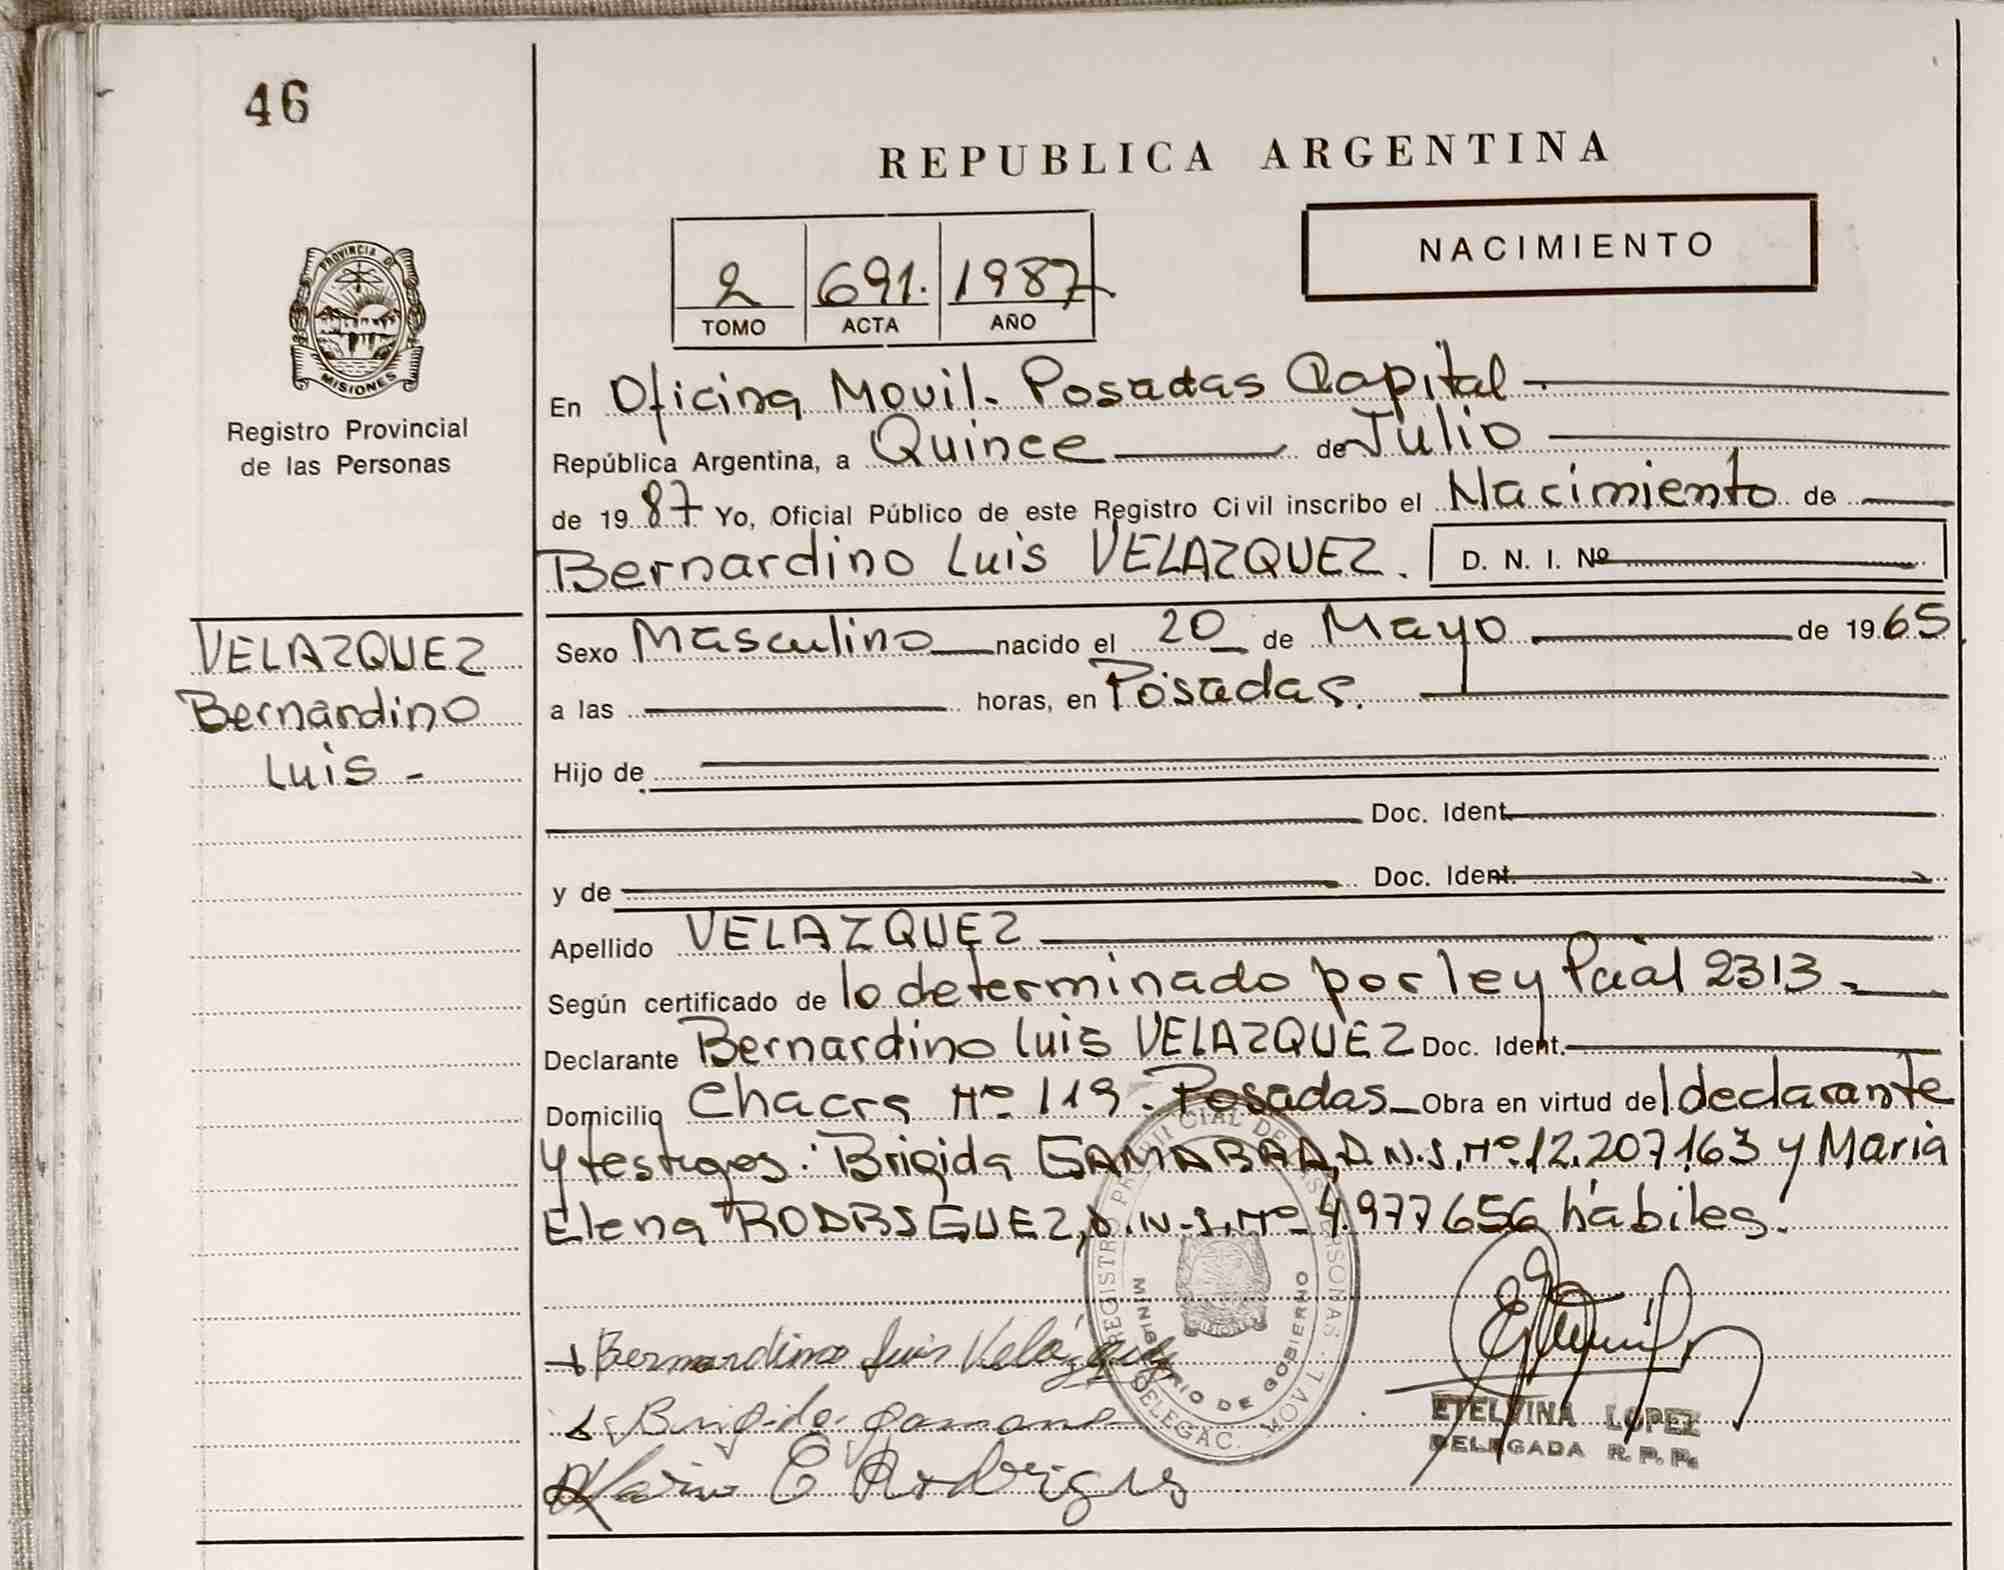 46
REPUBLICA ARGENTINA
NACIMIENTO
2 691. 1987
TOMO ACTA AÑO
PROVINCIA DE
MISIONES
Registro Provincial
de las Personas
En Oficina Movil. Posadas Capital
República Argentina, a Quince de Julio
de 1987 Yo, Oficial Público de este Registro Civil inscribo el Nacimiento de
Bernardino Luis VELAZQUEZ. D. N. I. Nº
VELAZQUEZ
Bernardino
Luis -
Sexo Masculino nacido el 20 de Mayo de 1965
a las horas, en Posadas.
Hijo de
Doc. Ident.
y de Doc. Ident.
Apellido VELAZQUEZ
Según certificado de lo determinado por ley Pcial 2313 -
Declarante Bernardino Luis VELAZQUEZ Doc. Ident.
Domicilio Chacra Nº 119 - Posadas Obra en virtud del declarante
y testigos: Brigida GAMARRA, D.N.I. Nº 12.207.163 y Maria
Elena RODRIGUEZ, D.N.I. Nº 4.977656 hábiles.
Bernardino Luis Velázquez
Brigida
Maria E Rodrigues
REGISTRO PROVINCIAL DE LAS PERSONAS
MINISTERIO DE GOBIERNO
DELEGAC. MOVIL
ETELVINA LOPEZ
DELEGADA R. P. P.